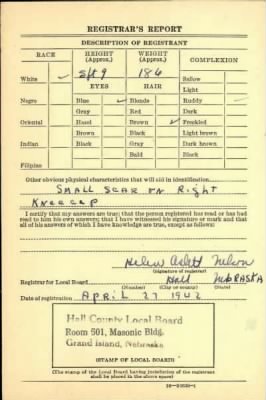 REGISTRAR'S REPORT
DESCRIPTION OF REGISTRANT
RACE HEIGHT (Approx.) WEIGHT (Approx.) COMPLEXION
White ✓ 5ft 9 186 Sallow
EYES HAIR Light
Negro Blue ✓ Blonde Ruddy
Gray Red Dark
Oriental Hazel Brown ✓ Freckled
Brown Black Light brown
Indian Black Gray Dark brown
Bald Black
Filipino
Other obvious physical characteristics that will aid in identification
SMALL SCAR ON Right
Knee cap
I certify that my answers are true; that the person registered has read or has had
read to him his own answers; that I have witnessed his signature or mark and that
all of his answers of which I have knowledge are true, except as follows:
Helen Nelson
(Signature of registrar)
Registrar for Local Board Hall NEBRASKA
(Number) (City or county) (State)
Date of registration APRIL 27 1942
Hall County Local Board
Room 601, Masonic Bldg.
Grand Island, Nebraska
(STAMP OF LOCAL BOARD)
(The stamp of the Local Board having jurisdiction of the registrant
shall be placed in the above space)